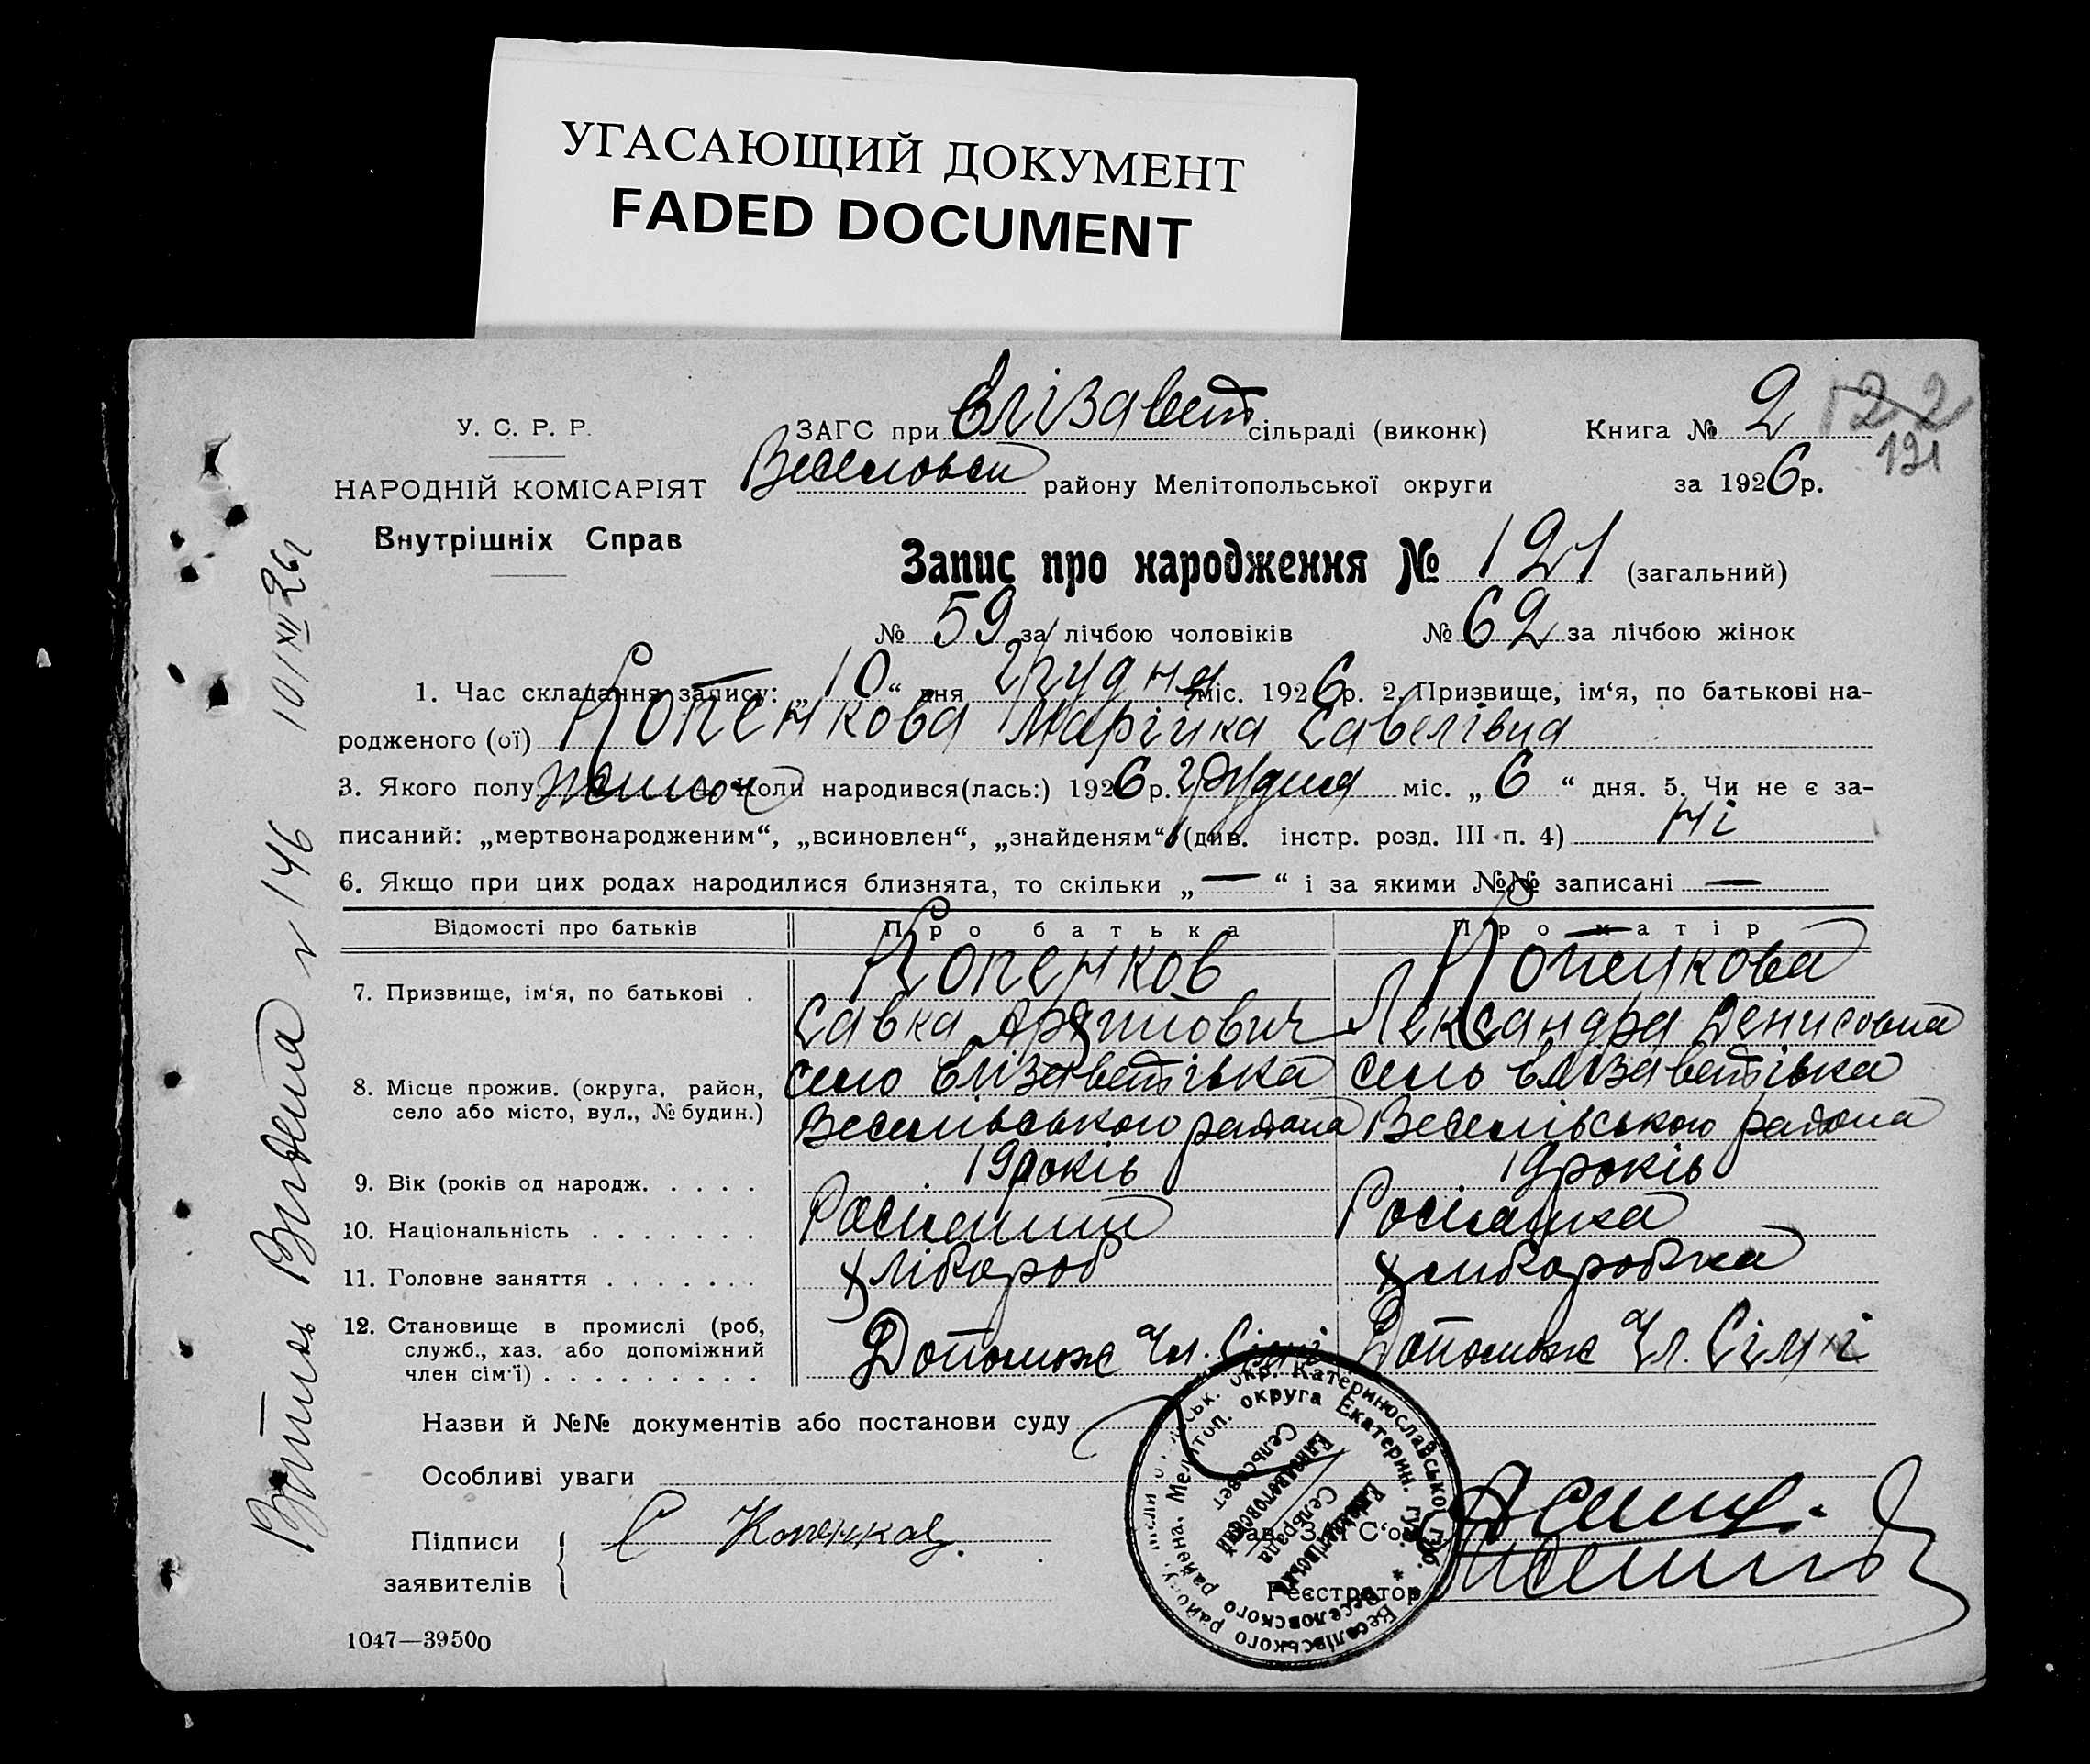 УГАСАЮЩИЙ ДОКУМЕНТ
FADED DOCUMENT
У. С. Р. Р.
НАРОДНІЙ КОМІСАРІЯТ
Внутрішніх Справ
ЗАГС при Єлізавет сільраді (виконк)
Книга № 2
122
121
Веселовськ району Мелітопольської округи
за 1926 р.
Запис про народження № 121 (загальний)
№ 59 за лічбою чоловіків № 62 за лічбою жінок
1. Час складання запису: „10“ дня грудня міс. 1926 р. 2. Призвище, ім‘я, по батькові на-
родженого (ої) Копенкова Марійка Савелівна
3. Якого полу жіноч Коли народився(лась:) 1926 р. грудня міс. „6“ дня. 5. Чи не є за-
писаний: „мертвонародженим“, „всиновлен“, „знайденям“ (див. інстр. розд. III п. 4) ні
6. Якщо при цих родах народилися близнята, то скільки „—“ і за якими №№ записані —
Відомості про батьків Про батька Про матір
7. Призвище, ім‘я, по батькові . Копенков Копенкова
Савка Лександра Денисовна
8. Місце прожив. (округа, район, село Єлізаветівка село Єлізаветівка
село або місто, вул., № будин.) Веселівського района Веселівського района
9. Вік (років од народж. . . . . 19 років 19 років
10. Національність . . . . . . . Росиянин Росиянка
11. Головне заняття . . . . . . . Хлібороб Хліборобка
12. Становище в промислі (роб, Допомож Чл. Сімї Допомож Чл. Сімї
служб., хаз. або допоміжний
член сім‘ї) . . . . . . . . . .
Назви й №№ документів або постанови суду
Особливі уваги
Підписи
заявителів
С Копенков.
Зав. ЗАГС‘ом
Реєстратор
1047—39500
Витись Видена № 146 10/XII 26 г